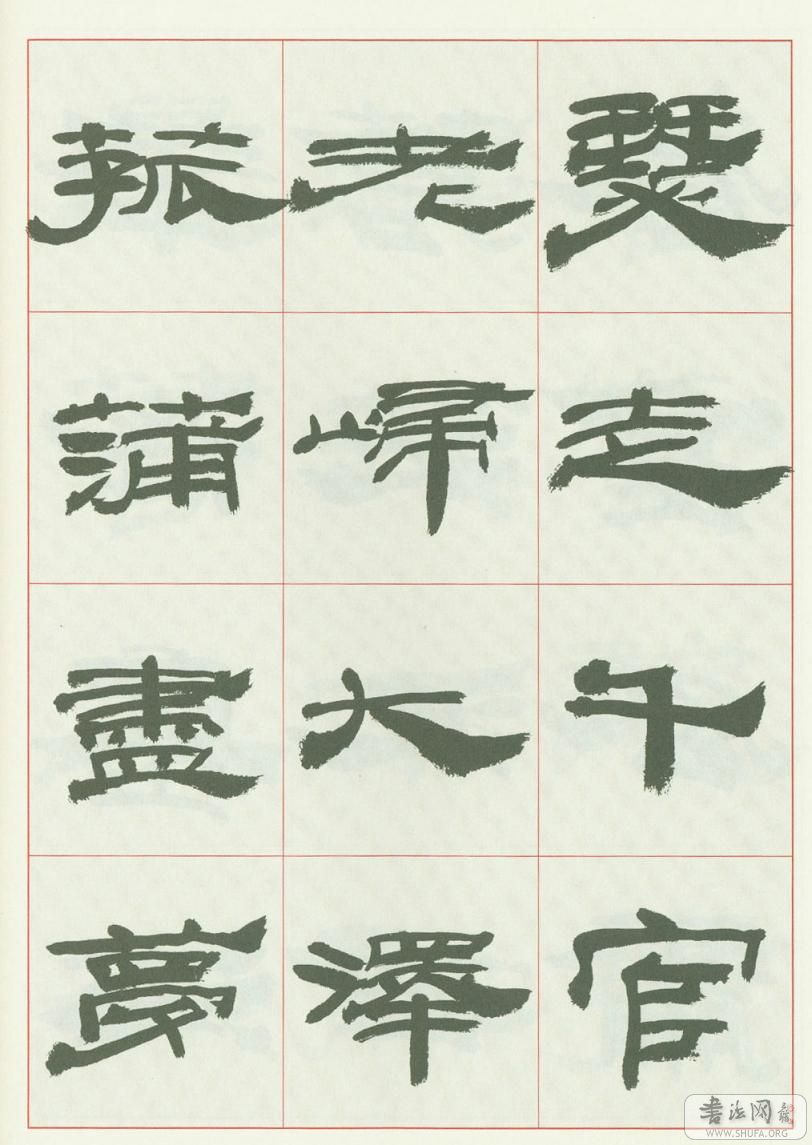 瑟走千官
老歸大澤
菰蒲盡夢
書法网
WWW.SHUFA.ORG